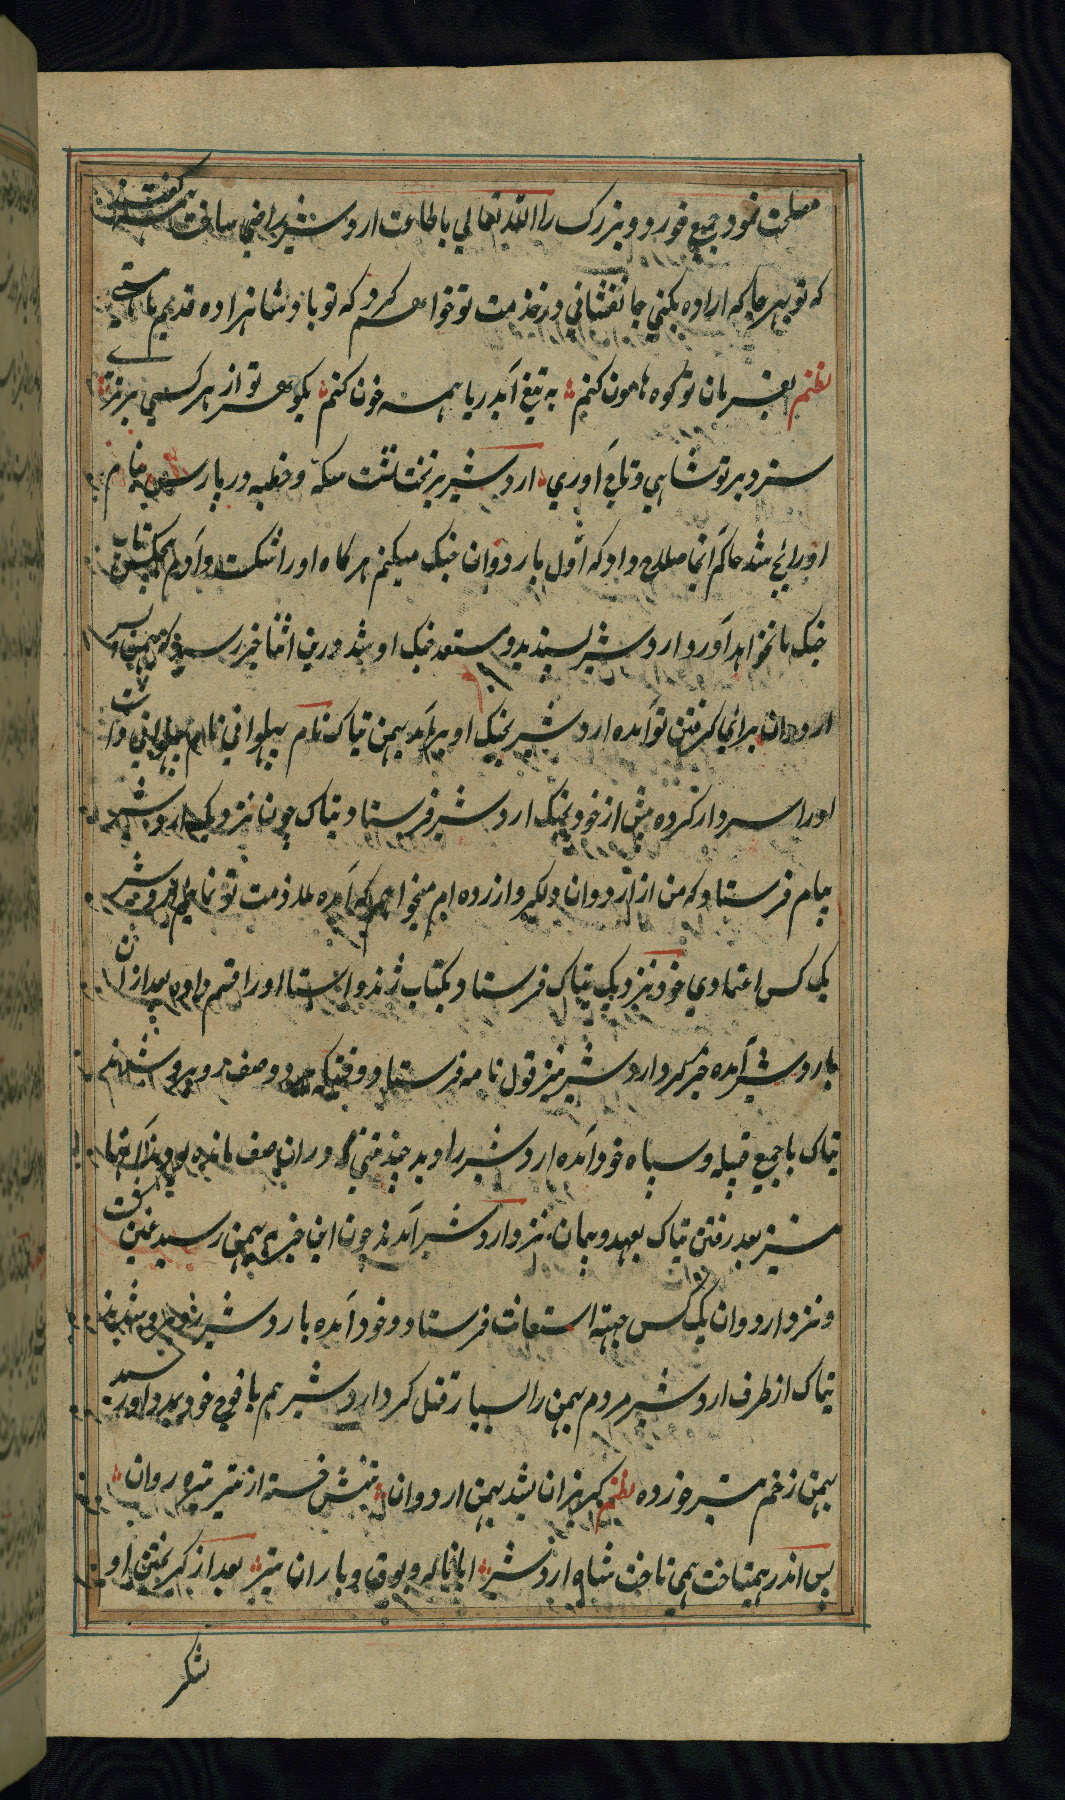 مصلحت نمود جمیع خورد و بزرک را الله تعالی باطاعت اردشیر راضی ساخت همه گفتند
که تو بهر جا که اراده بکنی جانفشانی در خدمت تو خواهم کرد که تو بادشاهزاده قدیم ما هستی
نظم بفرمان تو کوه هامون کنم به تیغ آبدریا همه خون کنم بکوهر تو از هر کسی برتری
سزد بر تو شاهی و تاج آوری اردشیر بر تخت نشست سکه و خطبه در پارس بنام
او رایج شد حاکم انجا صلاح داد که اول بار دوان جنک میکنم هر کاه او را شکست دادم هیچکس تاب
جنک ما نخواهد آورد اردشیر پسندید و مستعد جنک او شد درین اثنا خبر رسید که بهمن پسر
اردوان برای کرفتن تو آمده اردشیر بجنک او برآمد بهمن تباک نام پهلوانی نام داشت
او را سردار کرده پیش از خود بجنک اردشیر فرستاد تباک چون نزدیک اردشیر
پیام فرستاد که من از اردوان دلکیر و ازرده ام میخواهم که آمده ملازمت تو نمایم اردشیر
یک کس اعتمادی خود نزدیک تباک فرستاد بکتاب ژند و استا او را قسم داده بعد ازان
باردشیر آمده خبر کرد اردشیر نیز قول نامه فرستاد وقتیکه هر دو صف روبرو شدند
تباک با جمیع قبیله و سپاه خود آمده اردشیر را دید چند فتنی که دران صف مانده بودند آنها
نیز بعد رفتن تباک بعهد و پیمان نزد اردشیر آمدند چون این خبر به بهمن رسید غمین گشت
و نزد اردوان یک کس جهته استعانت فرستاد و خود آمده باردشیر روبرو شد
تباک از طرف اردشیر مردم بهمن را بسیار قتل کرد اردشیر هم با فوج خود بدو اور رسید
بهمن زخم تیر خورده نظم کریزان بشد بهمن اردوان تنش خسته از تیر تیره روان
پس اندر همیتاخت همی تاخت شاه اردشیر ابا ناله و بوق و باران تیر بعد از کریختن او
لشکر